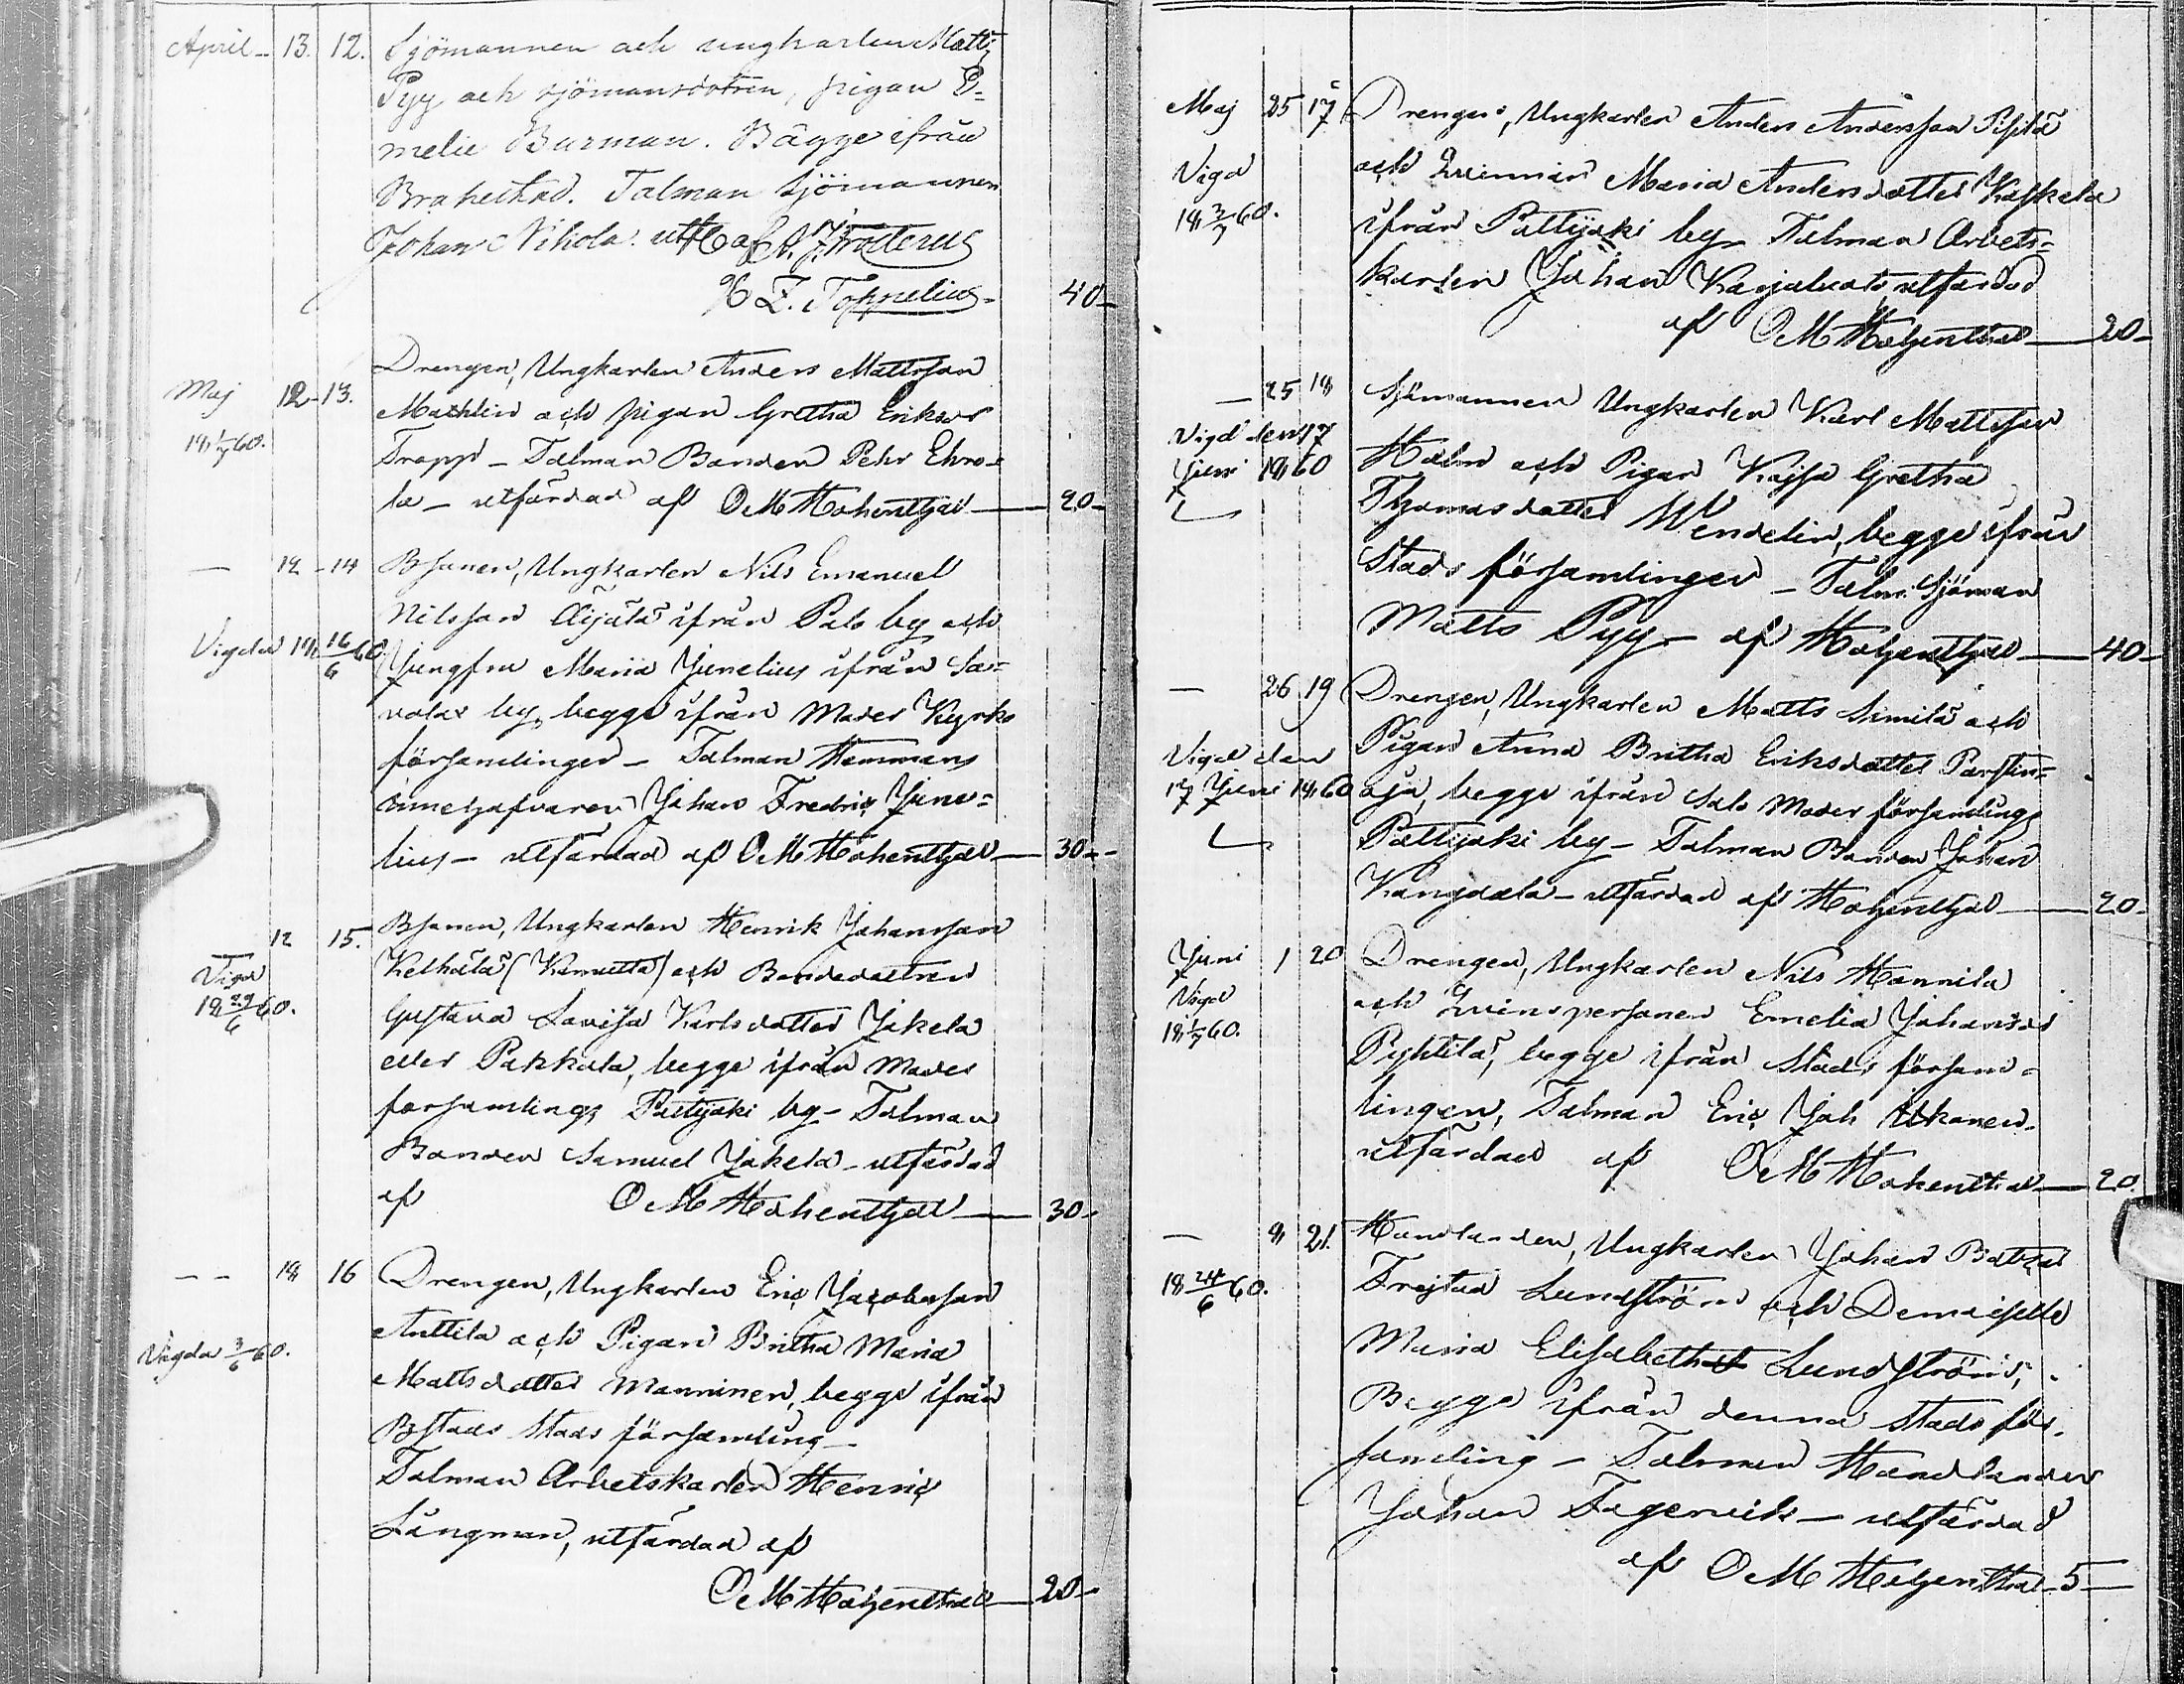 April – 13. 12. Sjömannen och ungkarlen Matts
Pyy och sjömansdotren, pigan E-
melie Burman. Bägge ifrån
Brahestad. Talman sjömannen
Johan Nikola. utf. af
Z. Topelius – 40 –
Maj 12 – 13. Drengen, Ungkarlen Anders Mattsson
Mathlin och pigan Gretha Eriksdr
18 1/7 60. Trapp – Talman Bonden Pehr Ehro-
la – utfärdad af O M Hohenthal – 20 –
— 12 – 14 Bsonen, Ungkarlen Nils Emanuel
Nilsson Äijälä ifrån Palo by och
Vigda 18 16/6 60 Jungfru Maria Junelius ifrån Sa-
volax by, begge ifrån Moder Kyrko
församlingen – Talman Hemmans
innehafvaren Johan Fredric June-
lius – utfärdad af O M Hohenthal – 30 –
— 12 15. Bsonen, Ungkarlen Henrik Johansson
Vigd Kelhälä (Kamutta) och Bondedottren
18 29/6 60. Gustava Lovisa Karlsdotter Jokela
eller Pakkala, begge ifrån Moder
församlings Pattijoki by – Talman
Bonden Samuel Jokela – utfärdad
af O M Hohenthal – 30 –
— — 18 16 Drengen, Ungkarlen Eric Jacobsson
Anttila och Pigan Britha Maria
Vigda 3/6 60. Mattsdotter Manninen, begge ifrån
Bstads Stads församling –
Talman Arbetskarlen Henric
Långman, utfärdad af
O M Hohenthal – 20 –
Maj 25 17 Drengen, Ungkarlen Anders Andersson Pihtilä
Vigd och Qvinnan Maria Andersdotter Koskela
18 3/7 60. ifrån Pattijoki by – Talman Arbets-
karlen Johan Karjaluoto, utfärdad
af O M Hohenthal – 20 –
— 25 18 Sjömannen Ungkarlen Karl Mattsson
Vigd den 17 Holm och Pigan Kajsa Gretha
Juni 1860 Thomasdotter Wendelin, begge ifrån
Stads församlingen – Talm. Sjöman
Matts Pyy – af Hohenthal – 40 –
— 26 19 Drengen, Ungkarlen Matts Simila och
Vigd den Pigan Anna Britha Eriksdotter Parstin-
17 Juni 1860 oja, begge ifrån Salo Moder församlings
Pattijoki by – Talman Bonden Johan
Kangala – utfärdad af Hohenthal – 20 –
Juni 1 20 Drengen, Ungkarlen Nils Hannila
Vigd och Qvinspersonen Emelia Johansdr
18 1/7 60. Pyhtilä, begge ifrån Stads försam-
lingen, Talman Eric Joh Ukonen.
utfärdad af O M Hohenthal – 20.
— 8 21. Handlanden, Ungkarlen Johan Baltzar
18 24/6 60. Frejtad Lundström och Demoiselle
Maria Elisabeth Lundström,
Begge ifrån denna Stads för-
samling – Talman Handlanden
Johan Fagervik – utfärdad
af O M Hohenthal – 5 –